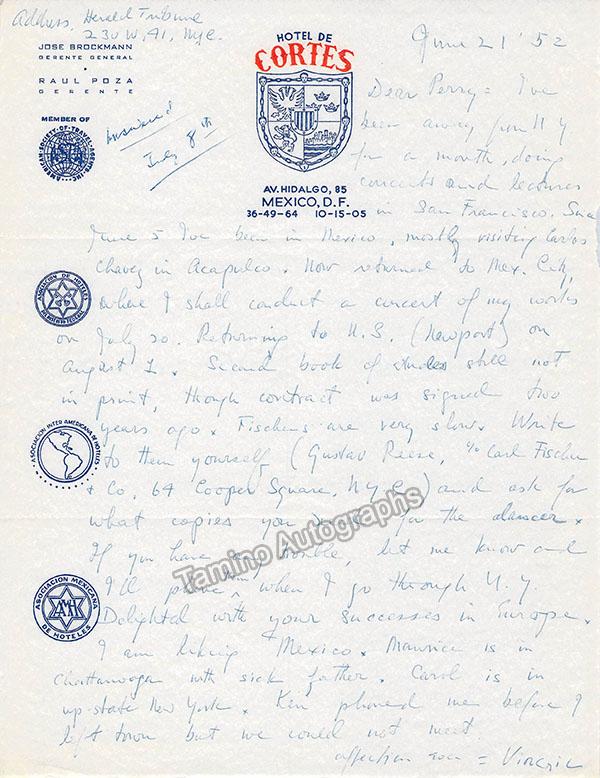 Address, Herald Tribune
230 W. 41, NYC.
JOSE BROCKMANN
GERENTE GENERAL
RAUL POZA
GERENTE
MEMBER OF
AMERICAN SOCIETY OF TRAVEL AGENTS, INC.
ASTA
answered
July 8th
HOTEL DE
CORTES
AV. HIDALGO, 85
MEXICO, D.F.
36-49-64 10-15-05
June 21 '52
Dear Perry = I've
been away from NY
for a month, doing
concerts and lectures
in San Francisco. Since
June 5 I've been in Mexico, mostly visiting Carlos
Chavez in Acapulco. Now returned to Mex. City,
where I shall conduct a concert of my works
on July 20. Returning to U.S. (Newport) on
August 1. Second book of etudes still not
in print, though contract was signed two
years ago. Fischers are very slow. Write
to them yourself (Gustav Reese, c/o Carl Fischer
& Co, 64 Cooper Square, NYC) and ask for
what copies you need for the dancer.
If you have any trouble, let me know and
I'll phone them when I go through N.Y.
Delighted with your successes in Europe.
I am liking Mexico. Maurice is in
Chattanooga with sick father. Carol is in
up-state New York. Ken phoned me before I
left town but we could not meet.
affection ever = Virgil
ASOCIACION DE HOTELES
ASOCIACION INTER AMERICANA DE HOTELES
ASOCIACION MEXICANA
DE HOTELES
AMH
Tamino Autographs